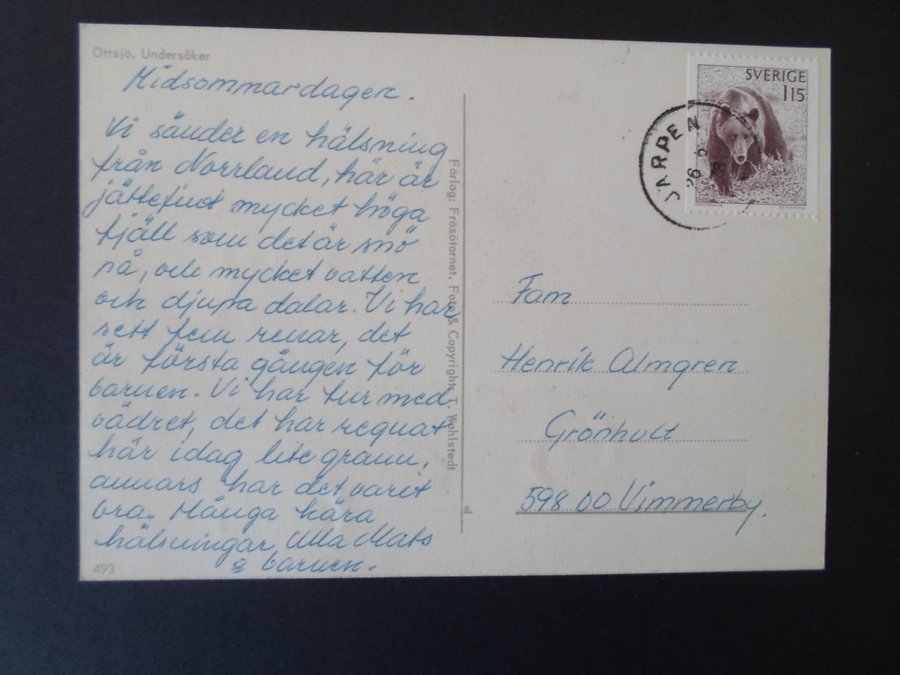 Ottsjö, Undersåker
Midsommardagen.
Vi sänder en hälsning
från Norrland, här är
jättefint mycket höga
fjäll som det är snö
på, och mycket vatten
och djupa dalar. Vi har
sett fem renar, det
är första gången för
barnen. Vi har tur med
vädret, det har regnat
här idag lite grann,
annars har det varit
bra. Många kära
hälsningar Ulla Mats
& barnen.
493
Förlag: Frösötornet. Foto & Copyright: T. Wahlstedt
SVERIGE
115
JÄRPEN
Fam
Henrik Almgren
Grönhult
598 00 Vimmerby.